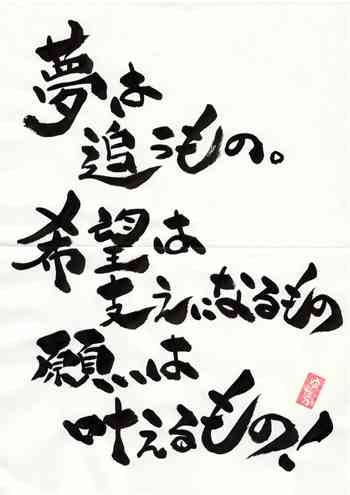 夢は
追うもの。
希望は
支えになるもの
願いは
叶えるもの!